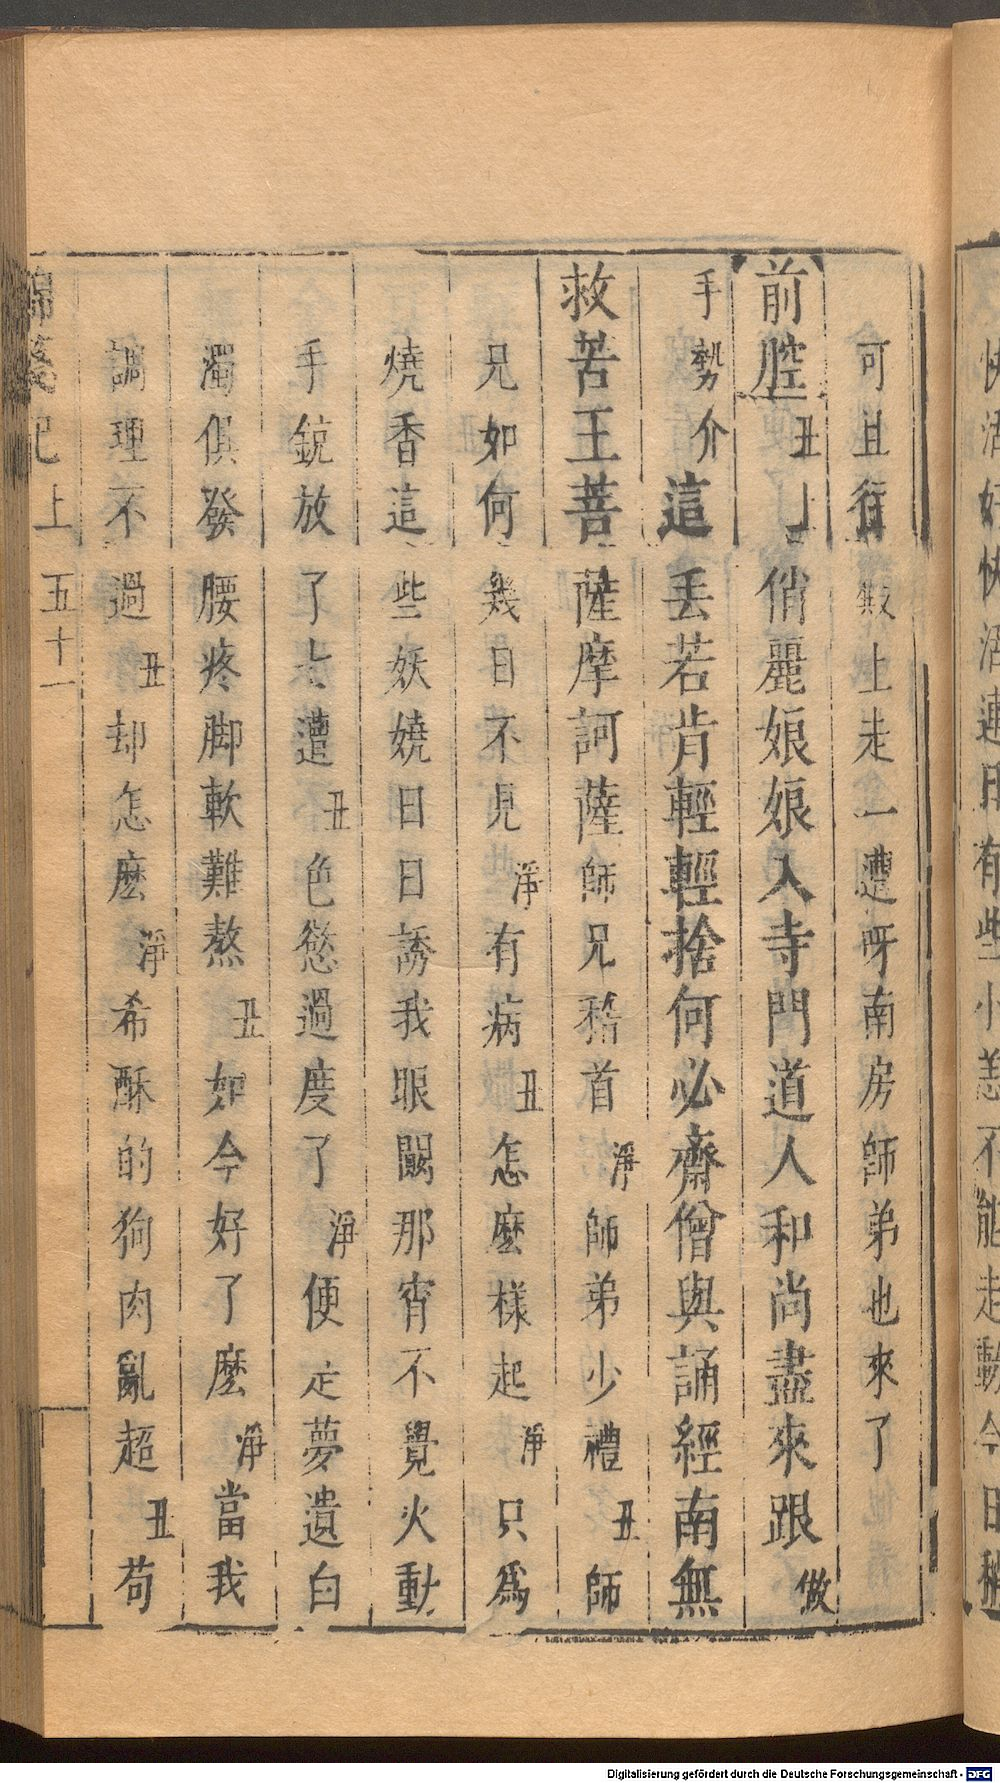 快活好快活連日有些小恙不能走動今日稍
可且行殿上走一遭呀南房師弟也來了
前腔丑上俏麗娘娘入寺門道人和尚盡來跟做
手勢介這丟若肯輕輕捨何必齋僧與誦經南無
救苦王菩薩摩訶薩師兄稽首淨師弟少禮丑師
兄如何幾日不見淨有病丑怎麼樣起淨只爲
燒香這些妖嬈日日誘我眼闞那宵不覺火動
手銃放了七遭丑色慾過度了淨便走夢遺白
濁俱發腰疼脚軟難熬丑如今好了麼淨當我
調理不過丑却怎麼淨希酥的狗肉亂超丑苟
錦箋記上 五十一
Digitalisierung gefördert durch die Deutsche Forschungsgemeinschaft - DFG